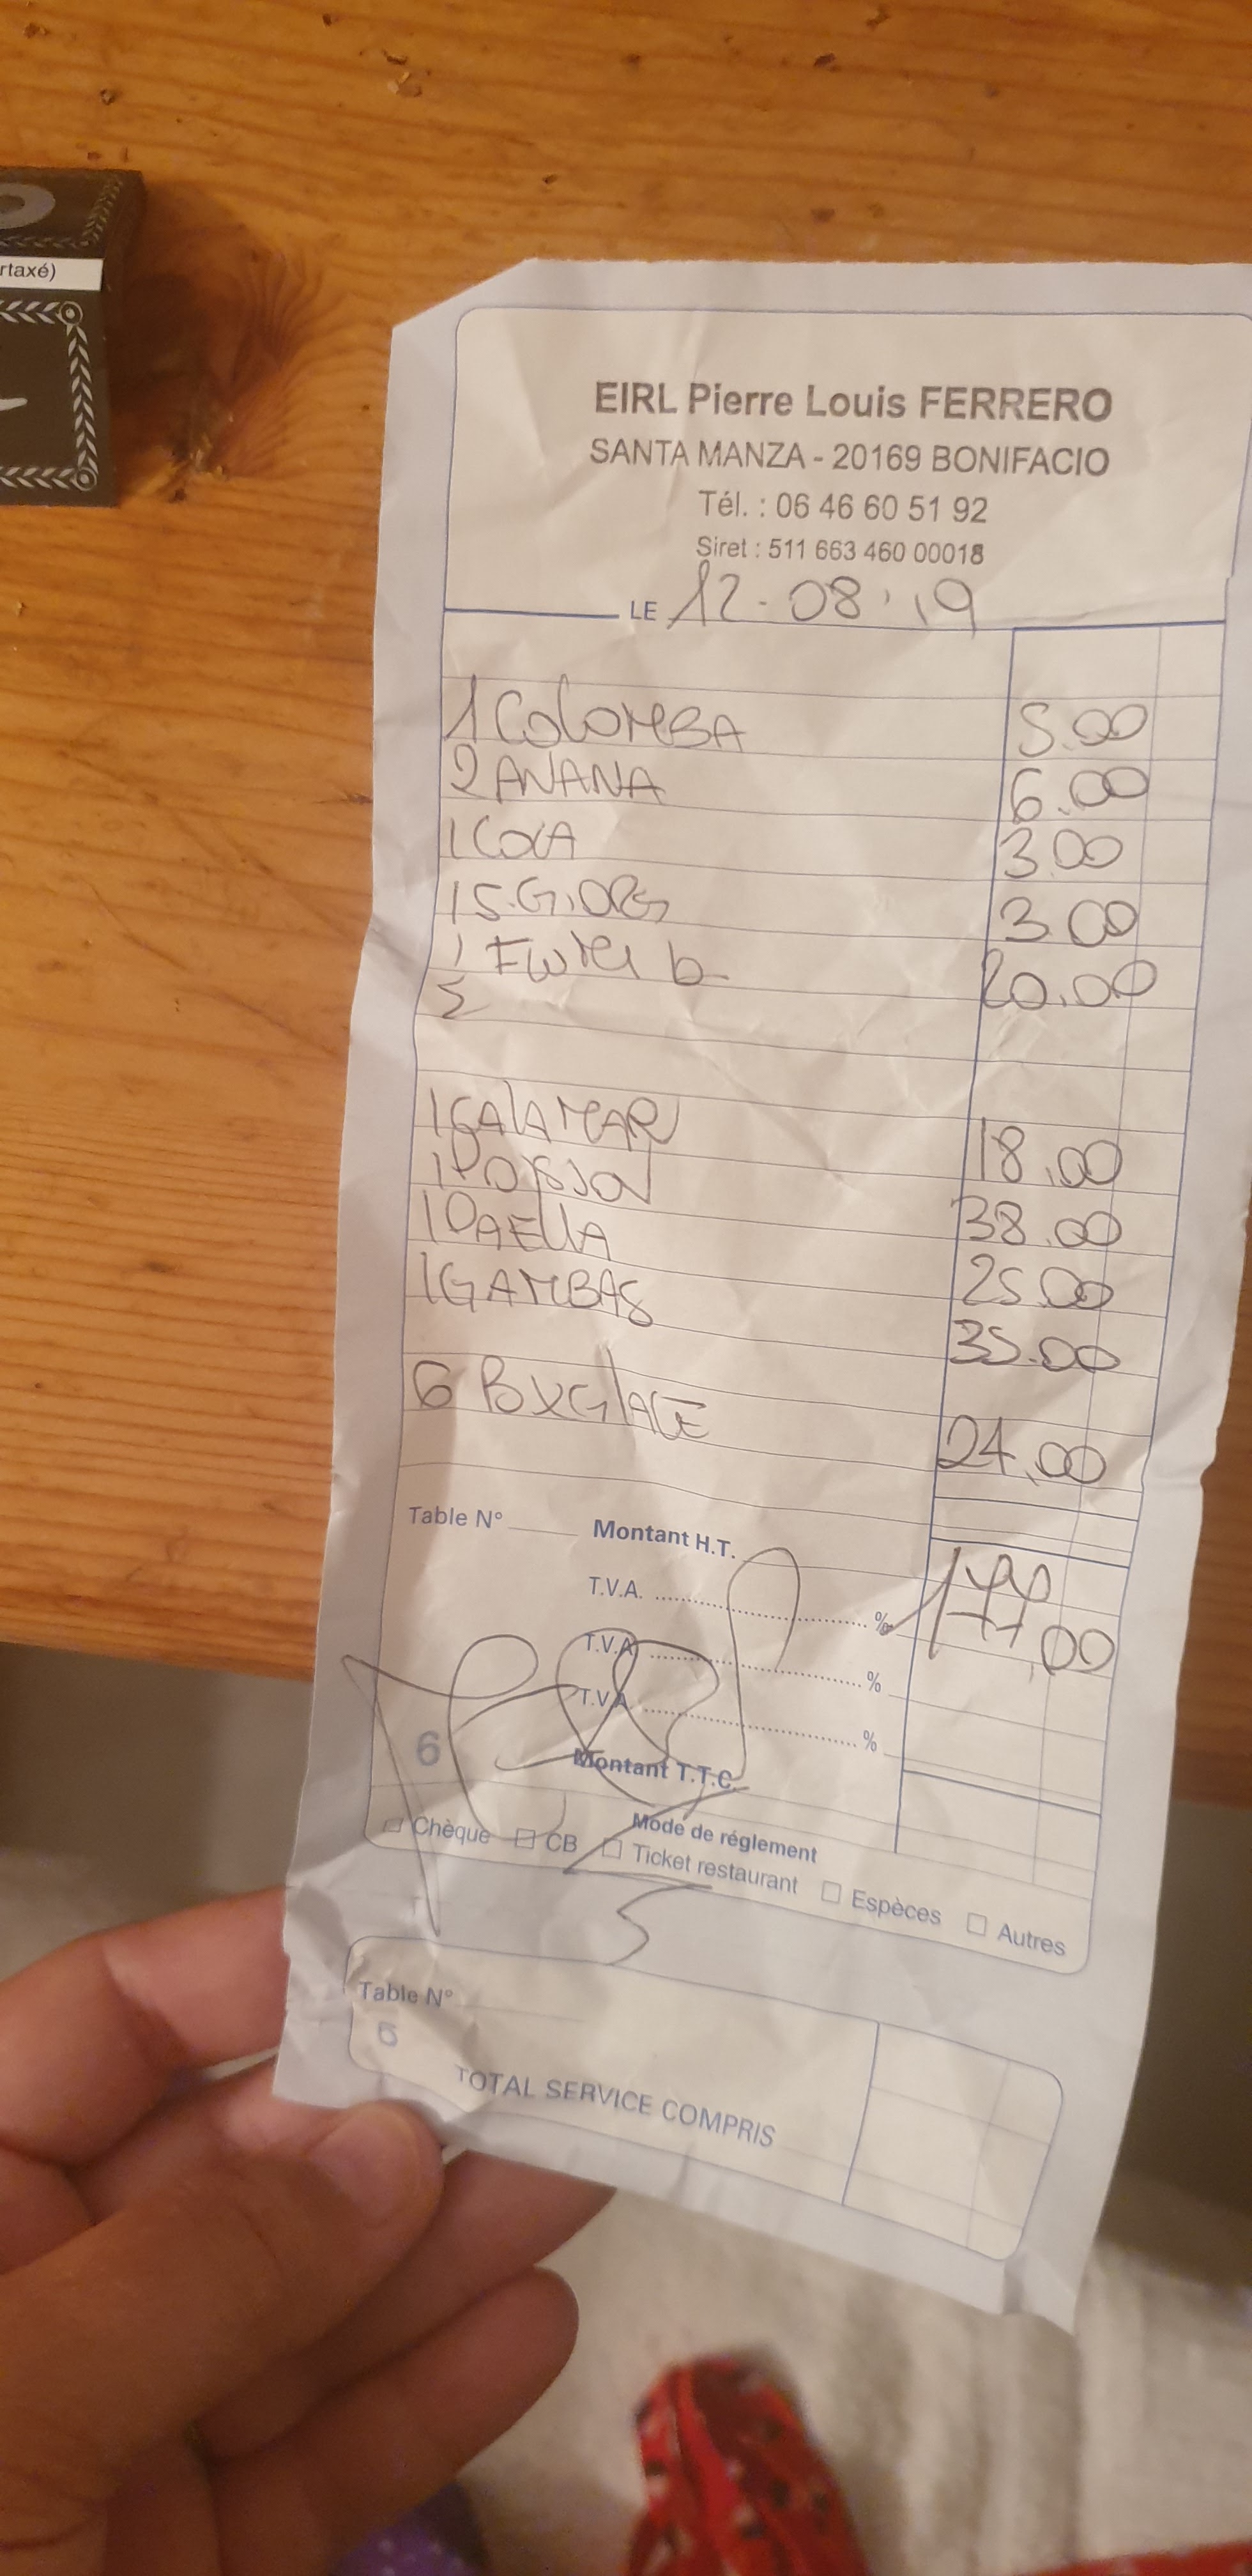 rtaxé)
EIRL Pierre Louis FERRERO
SANTA MANZA - 20169 BONIFACIO
Tél. : 06 46 60 51 92
Siret : 511 663 460 00018
LE 12-08.19
1 COLOMBA 5.00
2 ANANA 6.00
1 COCA 3.00
1 S.G.ORG 3.00
1 b 20.00
1 CALAMAR 18.00
1 POISSON 38.00
1 PAELLA 25.00
1 GAMBAS 35.00
6 BXGLACE 24.00
Table N° Montant H.T. 177,00
T.V.A. %
T.V.A. %
T.V.A. %
6 Montant T.T.C.
Mode de réglement
Chèque CB Ticket restaurant Espèces Autres
Table N°
6
TOTAL SERVICE COMPRIS